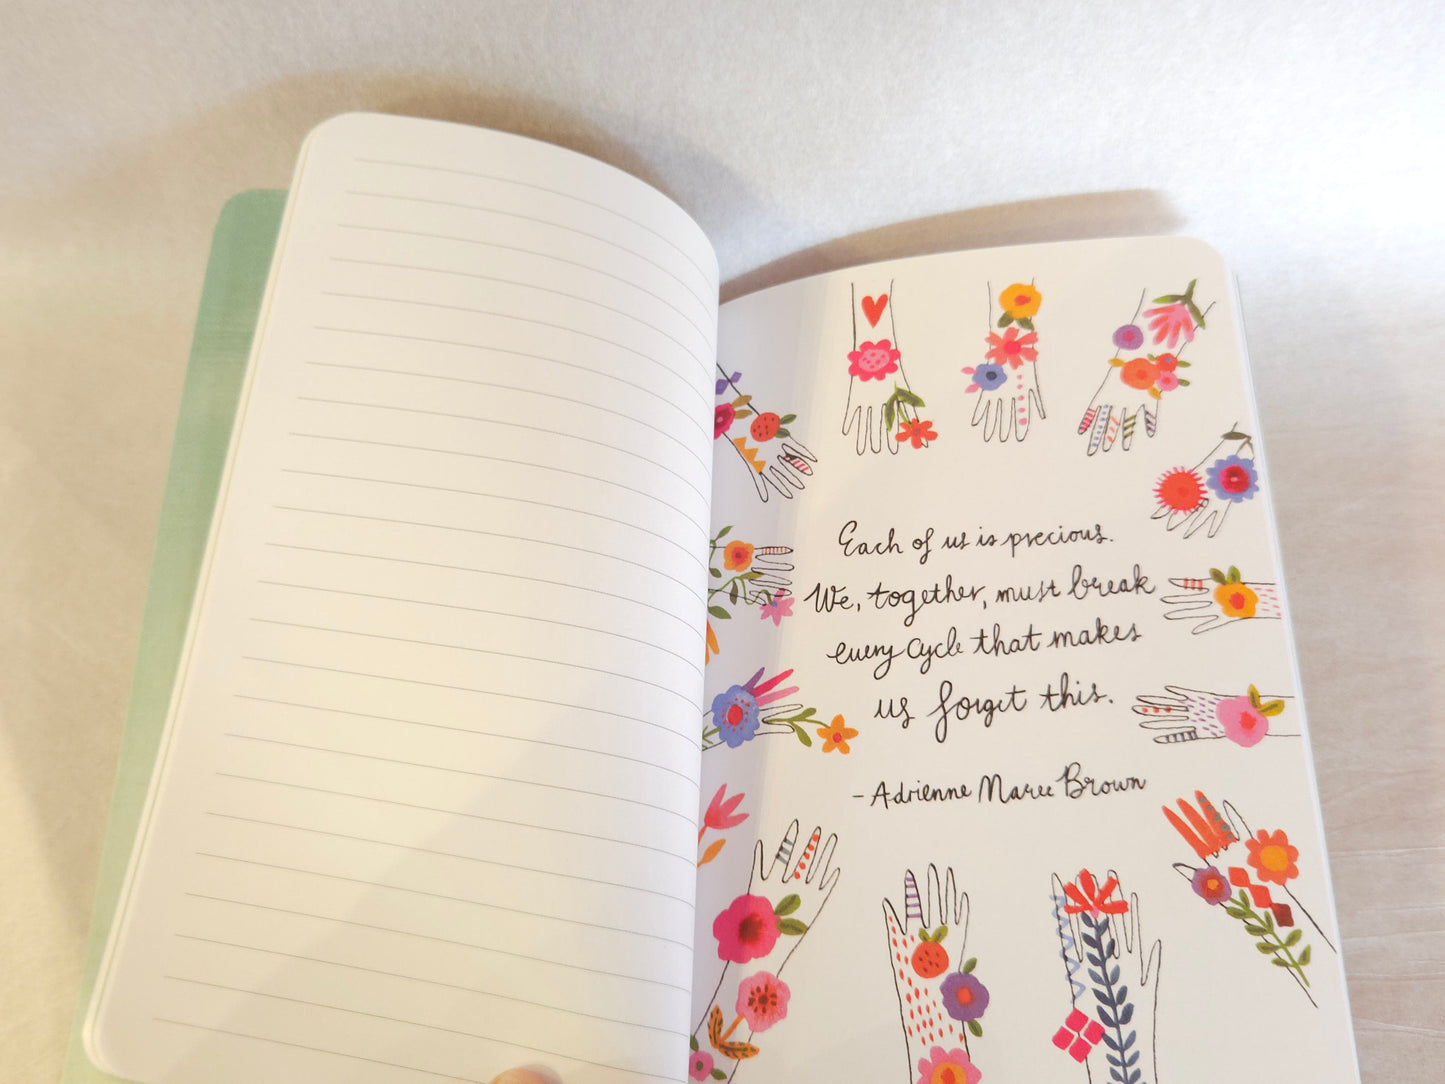 Each of us is precious.
We, together, must break
every cycle that makes
us forget this.
- Adrienne Maree Brown